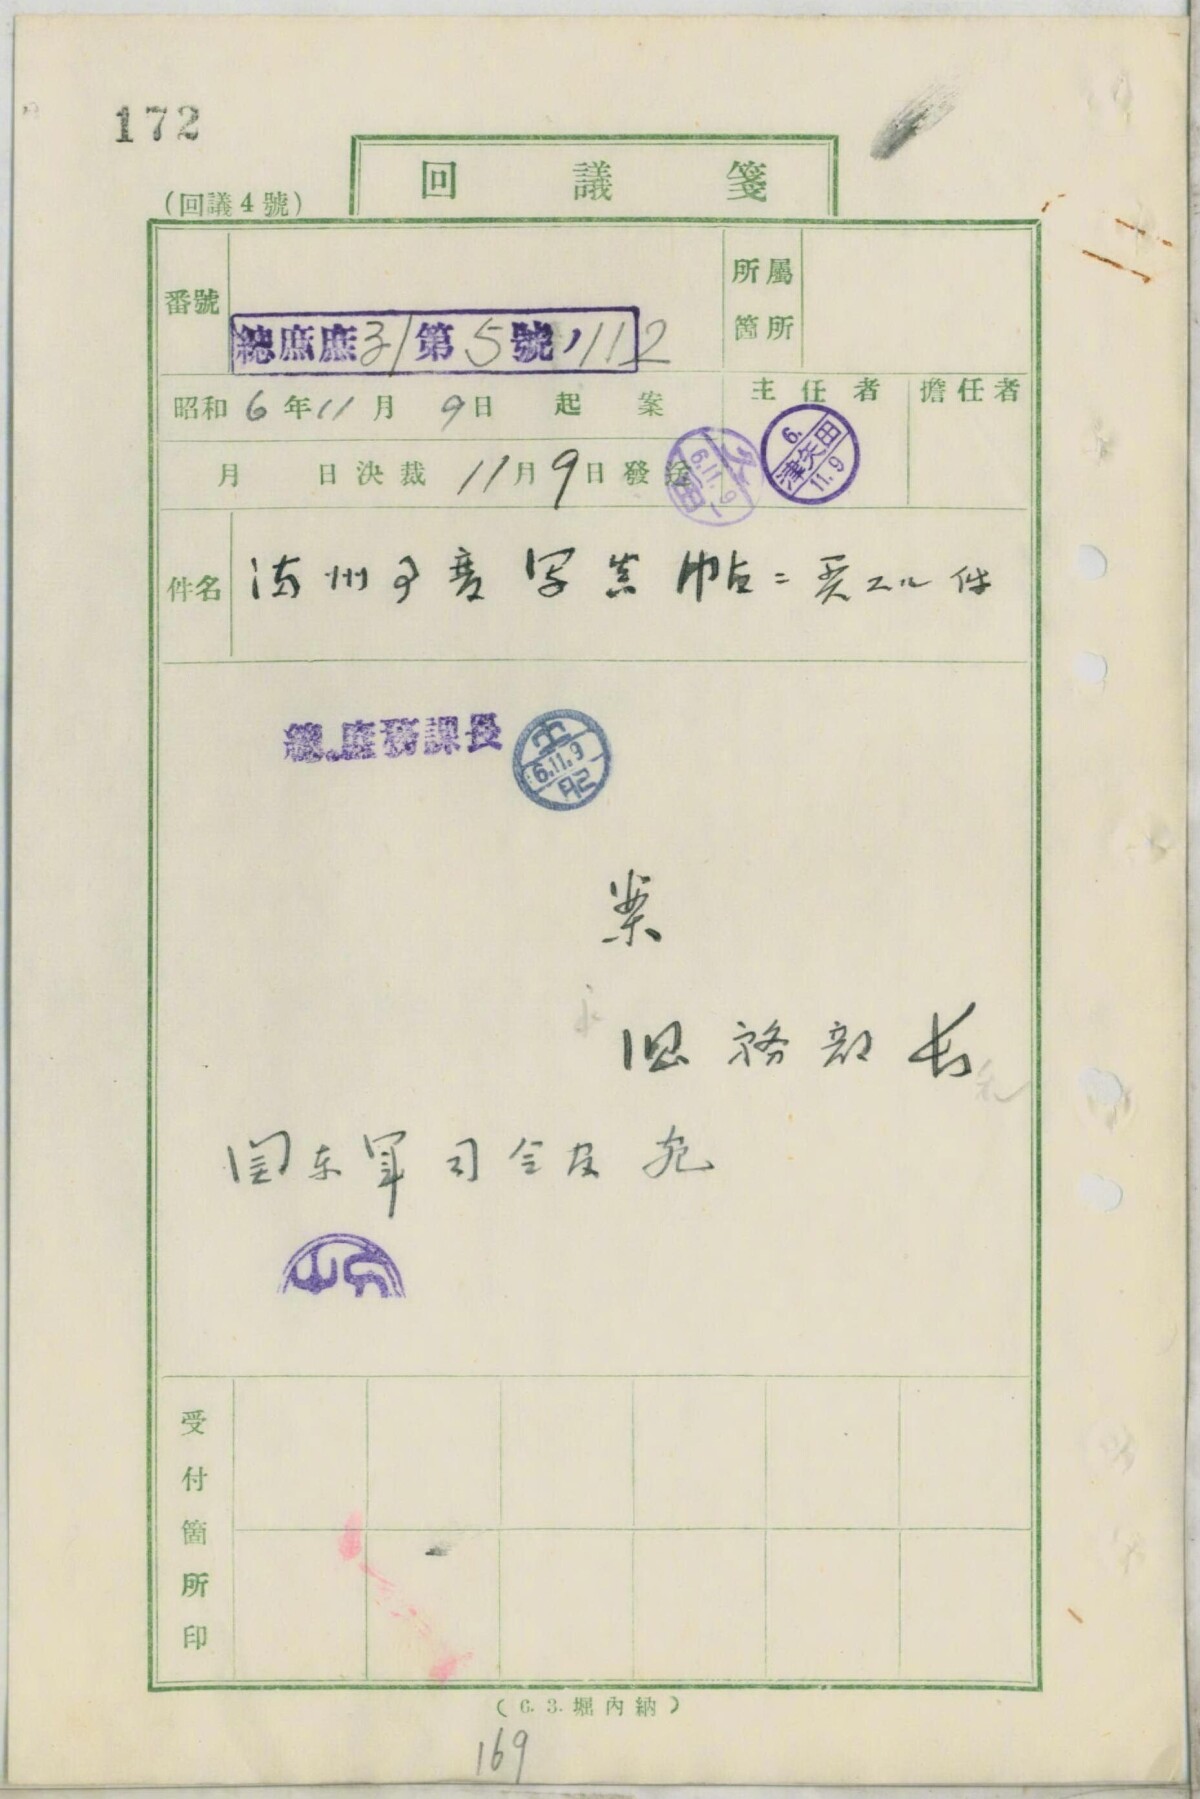 172
回議箋
(回議4號)
番號
總庶庶31第5號ノ112
所屬箇所
昭和6年11月9日起案
主任者
擔任者
月 日決裁 11月9日發送
6.11.9
6.
津矢田
11.9
件名
満州事変写真帖ニ関スル件
總、庶務課長
6.11.9
案
総務部長
関東軍司令官宛
受付箇所印
(6.3.堀內納)
169